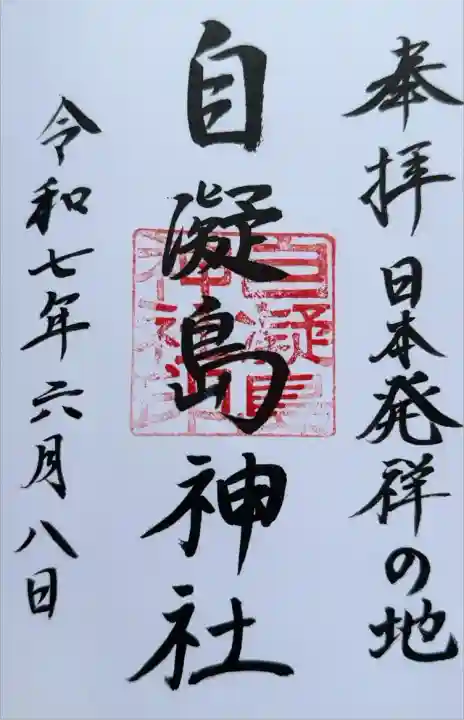 奉拝 日本発祥の地
自凝島神社
令和七年六月八日